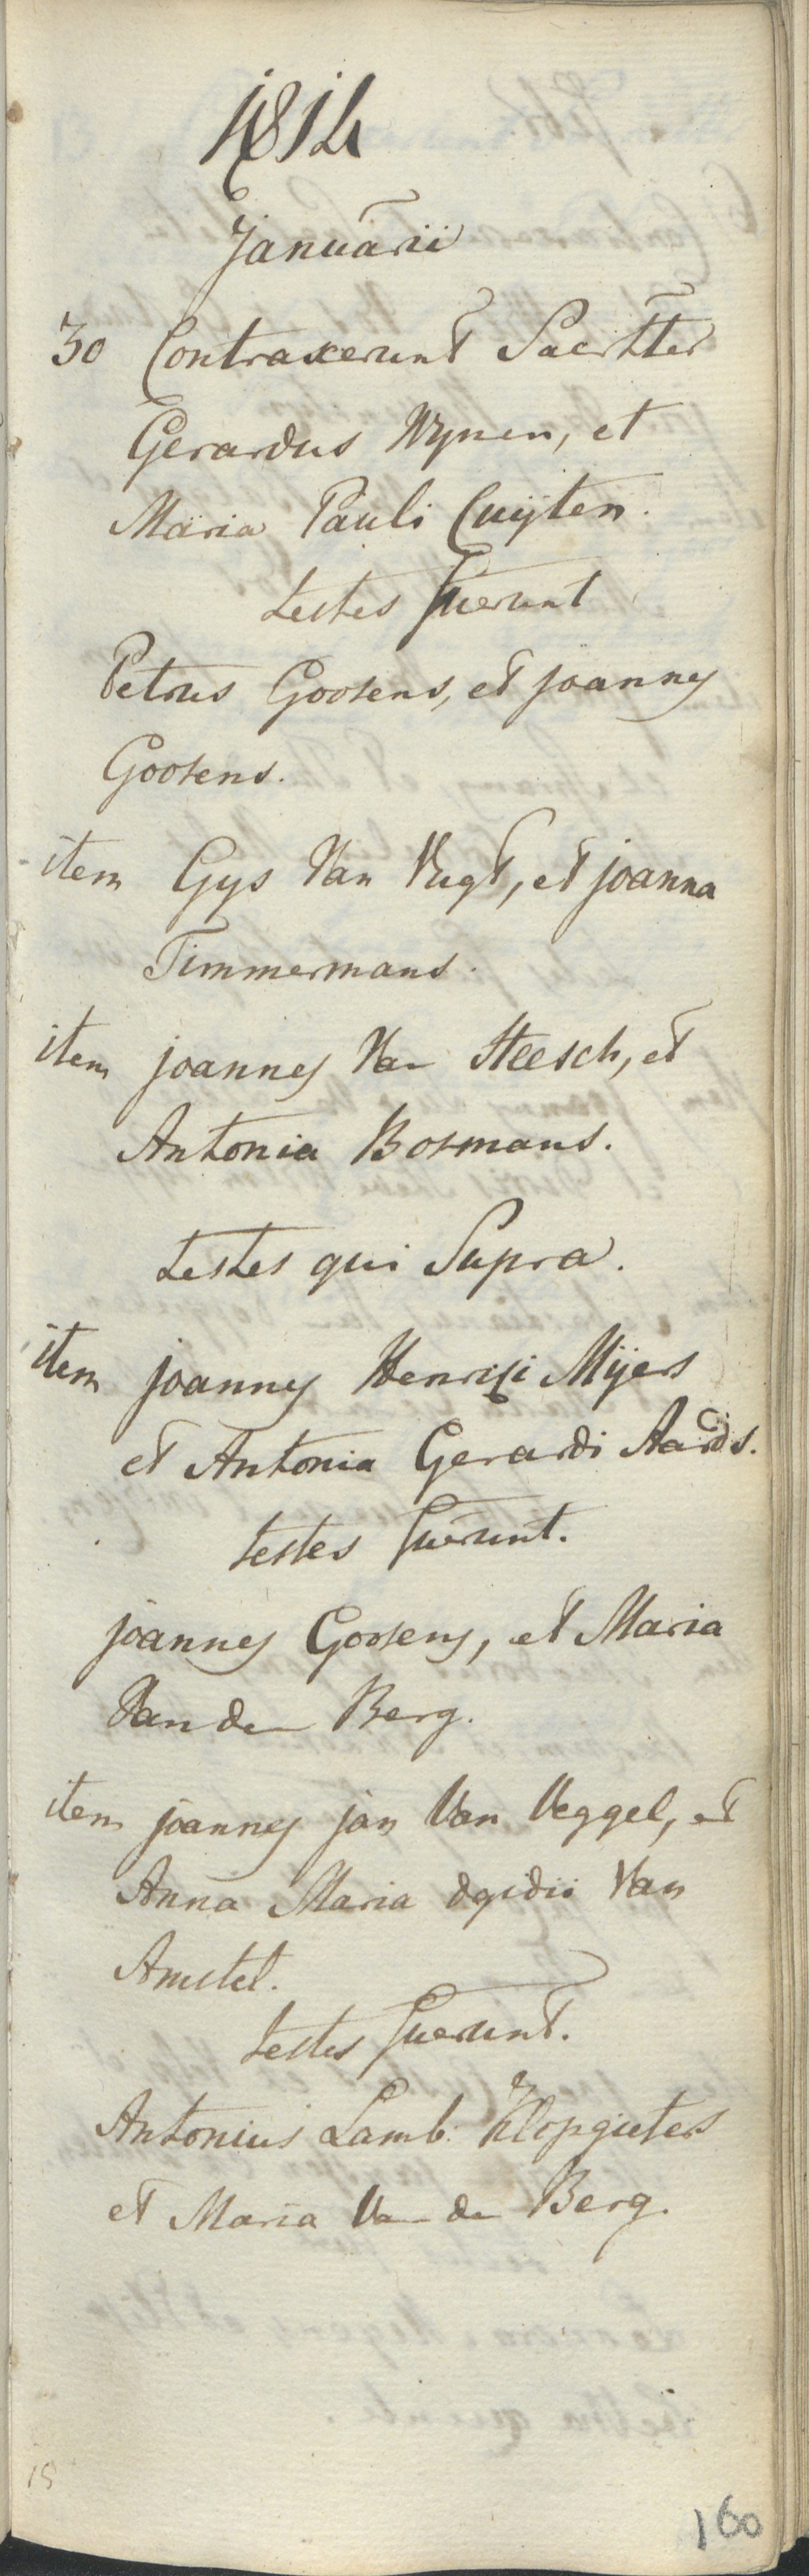 1814
Januarii
30 Contraxerunt Sacrtter
Gerardus Wynen, et
Maria Pauli Cuÿten.
testes fuerunt
Petrus Goosens, et joannes
Goosens.
item Gys Van Vugt, et joanna
Timmermans.
item joannes Van Heesch, et
Antonia Bosmans.
testes qui Supra.
item joannes Henrici Mÿers
et Antonia Gerardi Aards.
testes fuerunt.
joannes Goosens, et Maria
Van den Berg.
item joannes jan Van Veggel, et
Anna Maria Egidii Van
Amstel.
testes fuerunt.
Antonius Lamb: Klopgieters
et Maria Van den Berg.
15
160